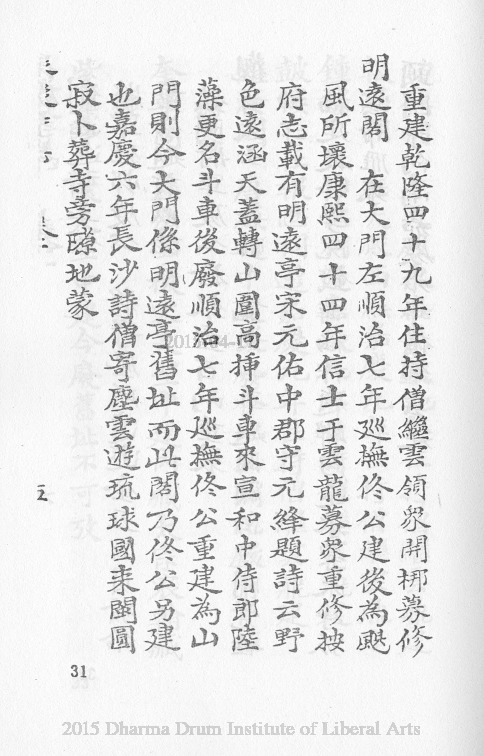 重建乾隆四十九年住持僧繼雲領衆開梆募修
明遠閣 在大門左順治七年巡撫佟公建後為颶
風所壞康熙四十四年信士于雲龍募衆重修按
府志載有明遠亭宋元佑中郡守元絳題詩云野
色遠涵天蓋轉山圍高揷斗車來宣和中侍郎陸
藻更名斗車後廢順治七年巡撫佟公重建為山
門則今大門係明遠亭舊址而此閣乃佟公另建
也嘉慶六年長沙詩僧寄塵雲遊琉球國来閩圓
寂卜葬寺旁隙地蒙
五
31
2015 Dharma Drum Institute of Liberal Arts